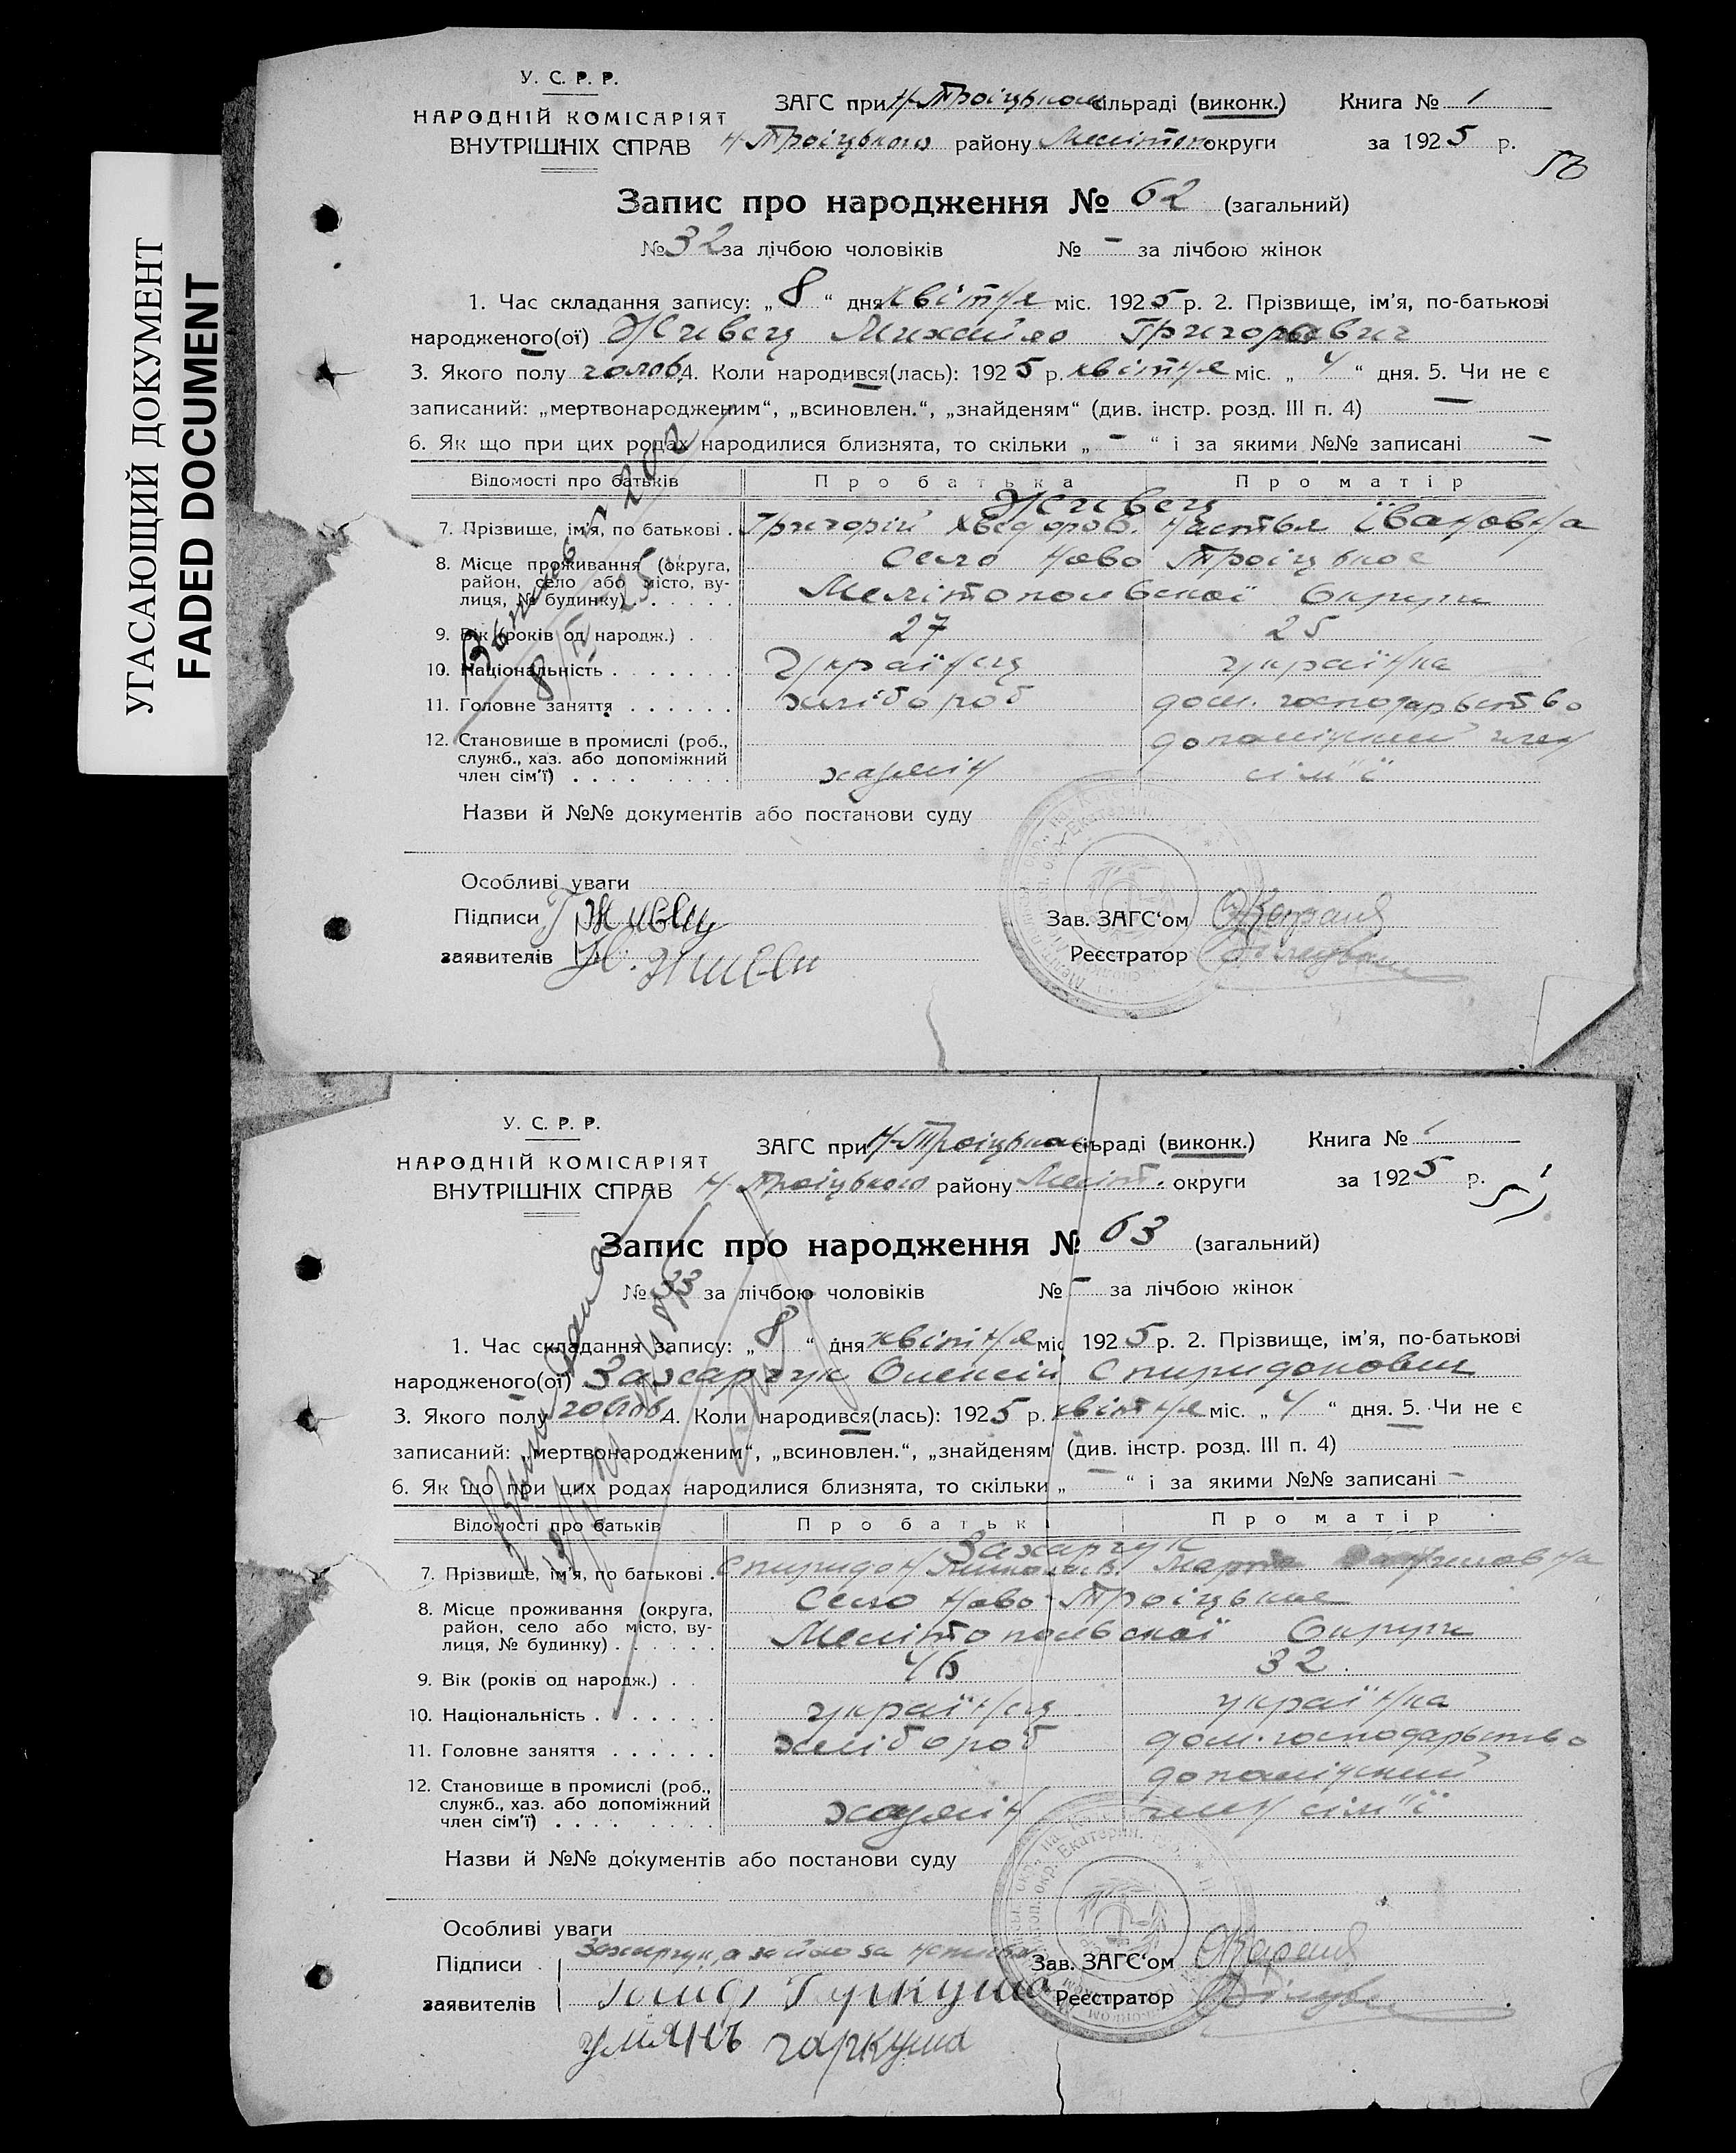 УГАСАЮЩИЙ ДОКУМЕНТ
FADED DOCUMENT
У. С. Р. Р.
НАРОДНІЙ КОМІСАРІЯТ
ВНУТРІШНІХ СПРАВ
ЗАГС при Н-Троіцьком сільраді (виконк.) Книга № 1
Н-Троіцького району Меліто округи за 1925 р.
Запис про народження № 62 (загальний)
№ 32 за лічбою чоловіків № – за лічбою жінок
1. Час складання запису: „ 8 “ дня квітня міс. 1925 р. 2. Прізвище, ім’я, по-батькові
народженого(ої) Живец Михайло Григорьевич
3. Якого полу чолов. 4. Коли народився(лась): 1925 р. квітня міс. „ 4 “ дня. 5. Чи не є
записаний: „мертвонародженим“, „всиновлен.“, „знайденям“ (див. інстр. розд. III п. 4) —
6. Як що при цих родах народилися близнята, то скільки „ – “ і за якими №№ записані –
Відомості про батьків Про батька Про матір
Живец
7. Прізвище, ім’я, по батькові . Григорій Хведоров. Настья Івановна
8. Місце проживання (округа, Село Ново Троіцькое
район, село або місто, ву-
лиця, № будинку) . . . . . Мелітопольської Округи
9. Вік (років од народж.) . . 27 25
10. Національність . . . . . . . Українец українка
11. Головне заняття . . . . . . хлібороб дом. господарьство
12. Становище в промислі (роб., допоміжний член
служб., хаз. або допоміжний
член сім’ї) . . . . . . . . хазяін сім"ї
8/IV 25
Назви й №№ документів або постанови суду
Особливі уваги
Підписи Г Живец Зав. ЗАГС‘ом
заявителів Н. Живец Реєстратор
У. С. Р. Р.
НАРОДНІЙ КОМІСАРІЯТ
ВНУТРІШНІХ СПРАВ
ЗАГС при Н-Троіцьком сільраді (виконк.) Книга № 1
Н-Троіцького району Меліт. округи за 1925 р.
Запис про народження № 63 (загальний)
№ 33 за лічбою чоловіків № – за лічбою жінок
1. Час складання запису: „ 8 “ дня квітня міс 1925 р. 2. Прізвище, ім’я, по-батькові
народженого(ої) Захарчук Олексій Спиридонович
3. Якого полу чолов. 4. Коли народився(лась): 1925 р. квітня міс. „ 4 “ дня. 5. Чи не є
записаний: „мертвонародженим“, „всиновлен.“, „знайденям (див. інстр. розд. III п. 4)
6. Як що при цих родах народилися близнята, то скільки „ – “ і за якими №№ записані –
Відомості про батьків Про батьк Про матір
Захарчук
7. Прізвище, ім’я, по батькові . Спиридон Микол.в. Марта
8. Місце проживання (округа, Село Ново-Троіцькое
район, село або місто, ву-
лиця, № будинку) . . . . . . Мелітопольської Округи
9. Вік (років од народж.) . . 46 32
10. Національність . . . . . . . українец українка
11. Головне заняття . . . . . . хлібороб дом. господарьство
12. Становище в промислі (роб., допоміжний
служб., хаз. або допоміжний
член сім’ї) . . . . . . . . хазяін член сім"ї
Назви й №№ документів або постанови суду
Особливі уваги
Підписи Захарчук, а за його Зав. ЗАГС‘ом
заявителів Гаркуша Реєстратор
гаркуша